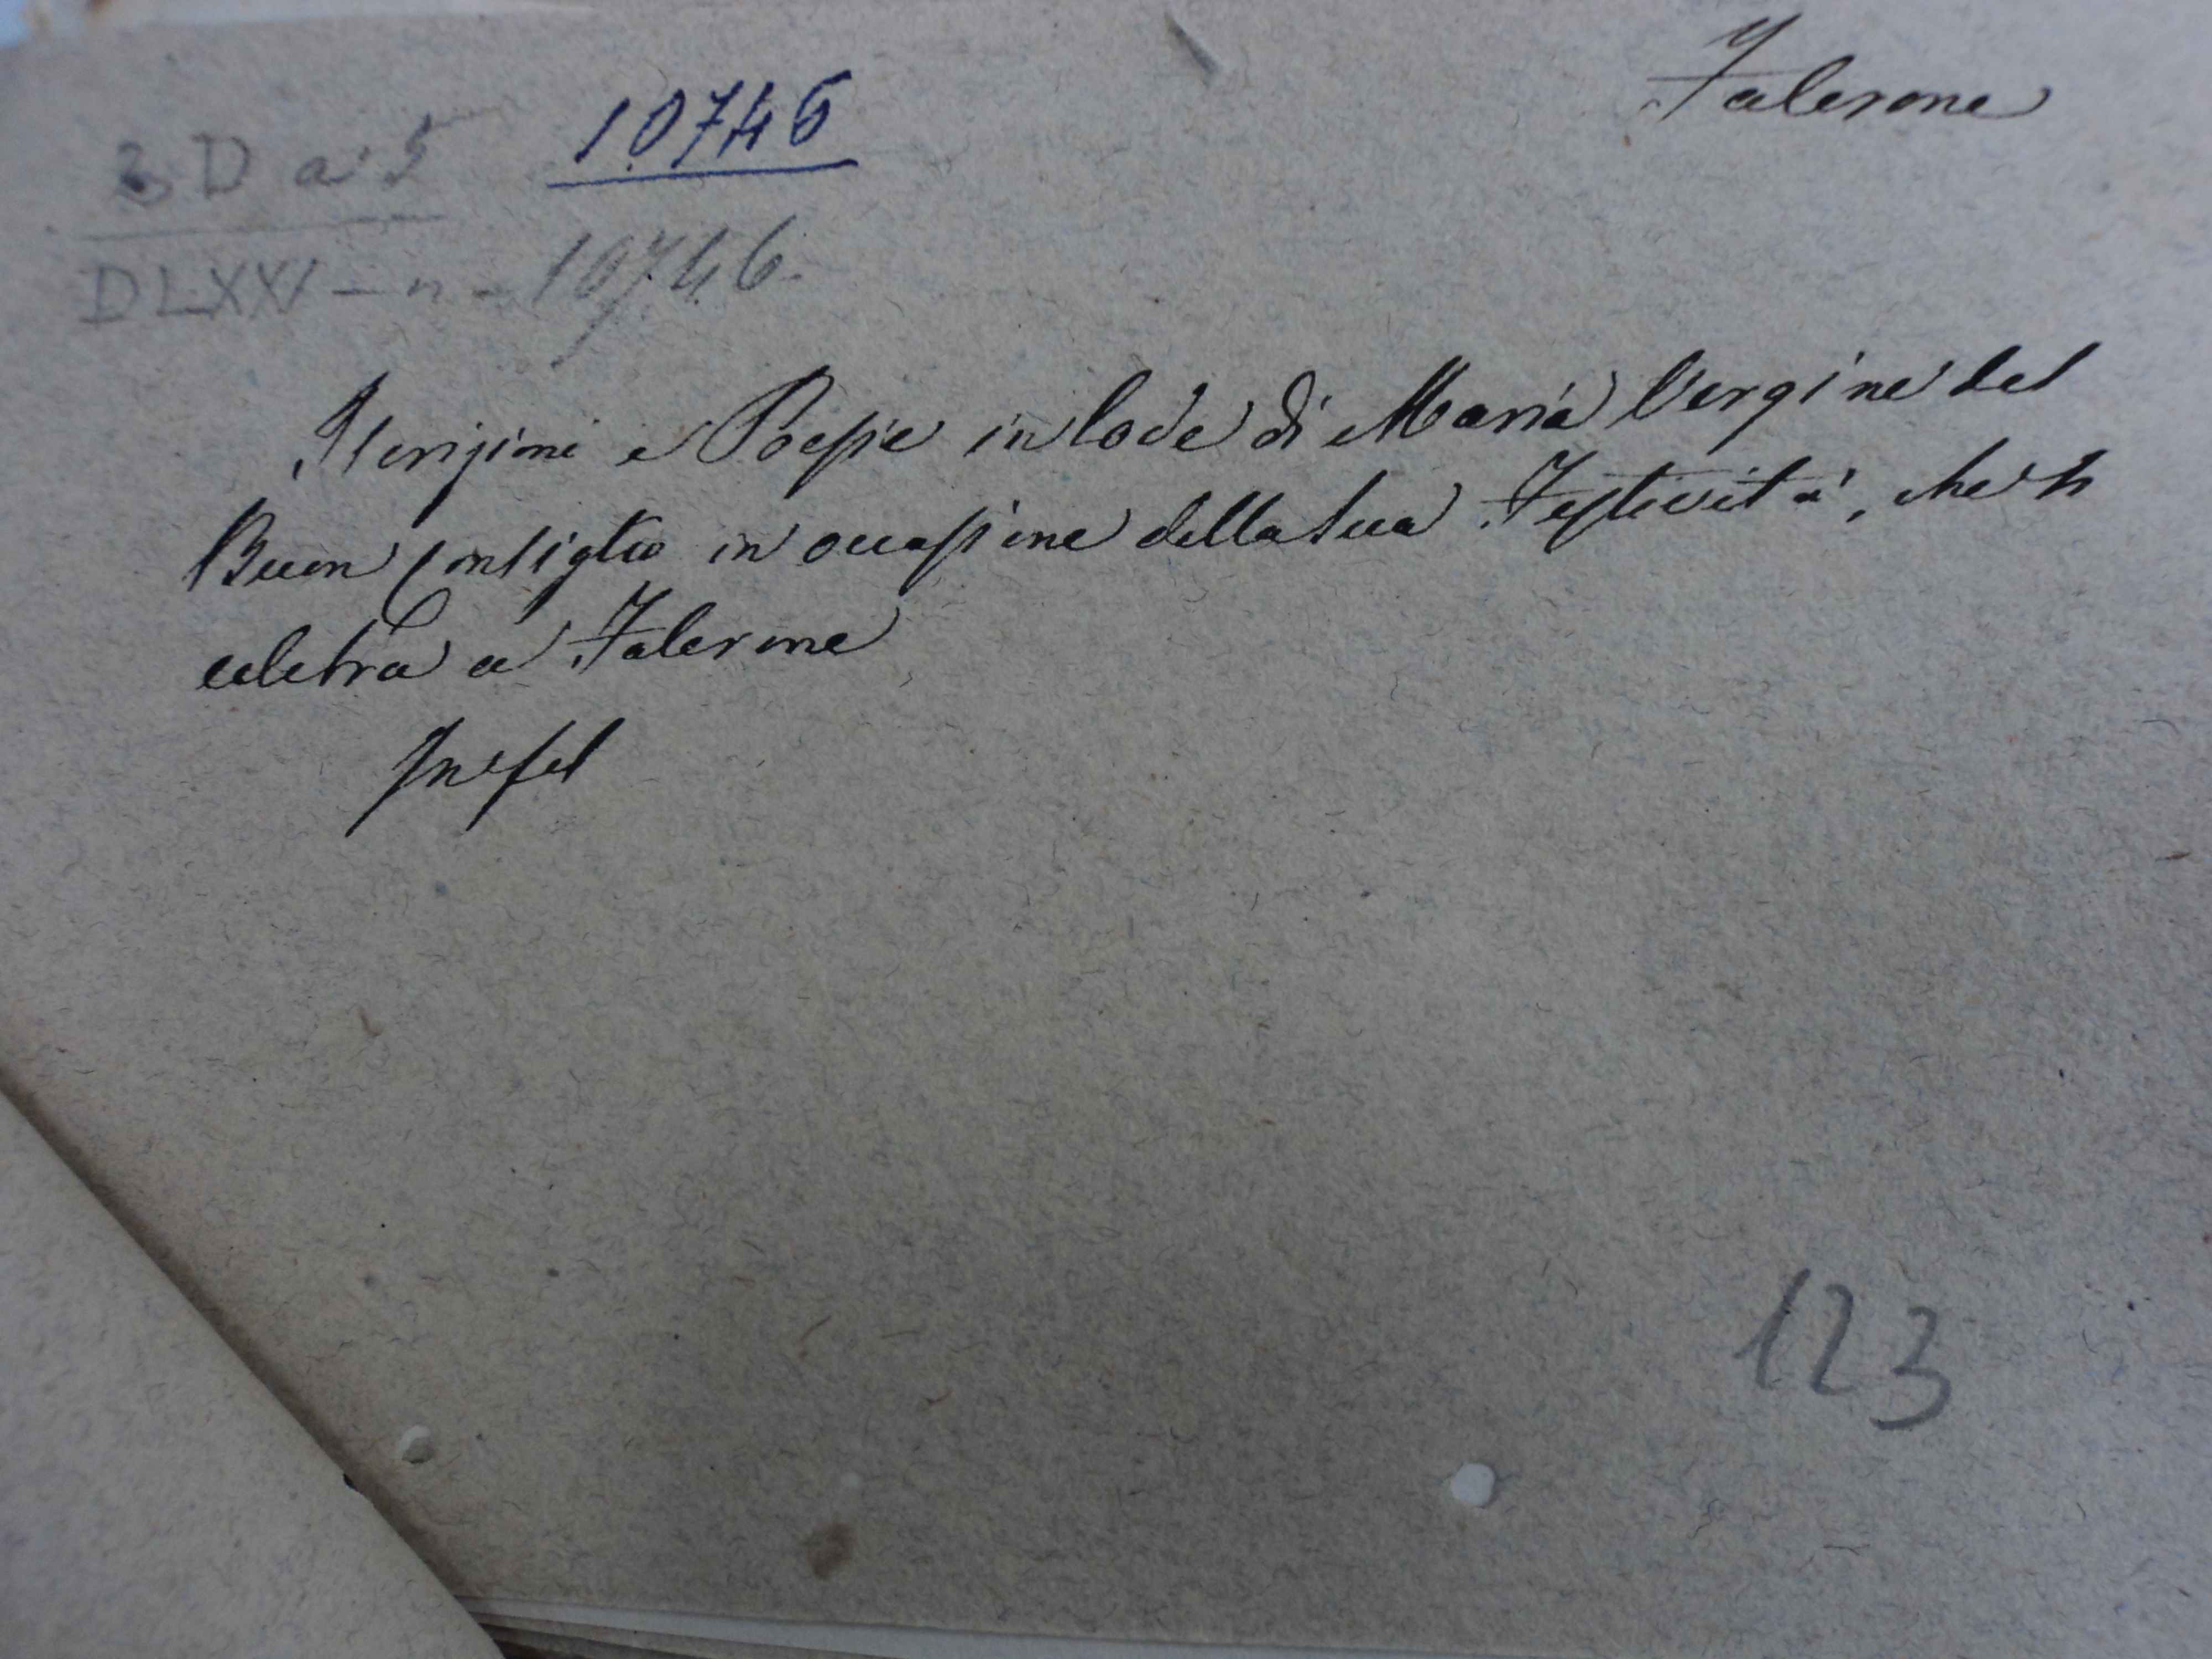 Falerone
3 D a 5
10746
DLXXI - n - 10746.
Iscrizioni e Poesie in lode di Maria Vergine del
Buon Consiglio in occasione della sua Festività, che si
celebra a Falerone
In fol
123